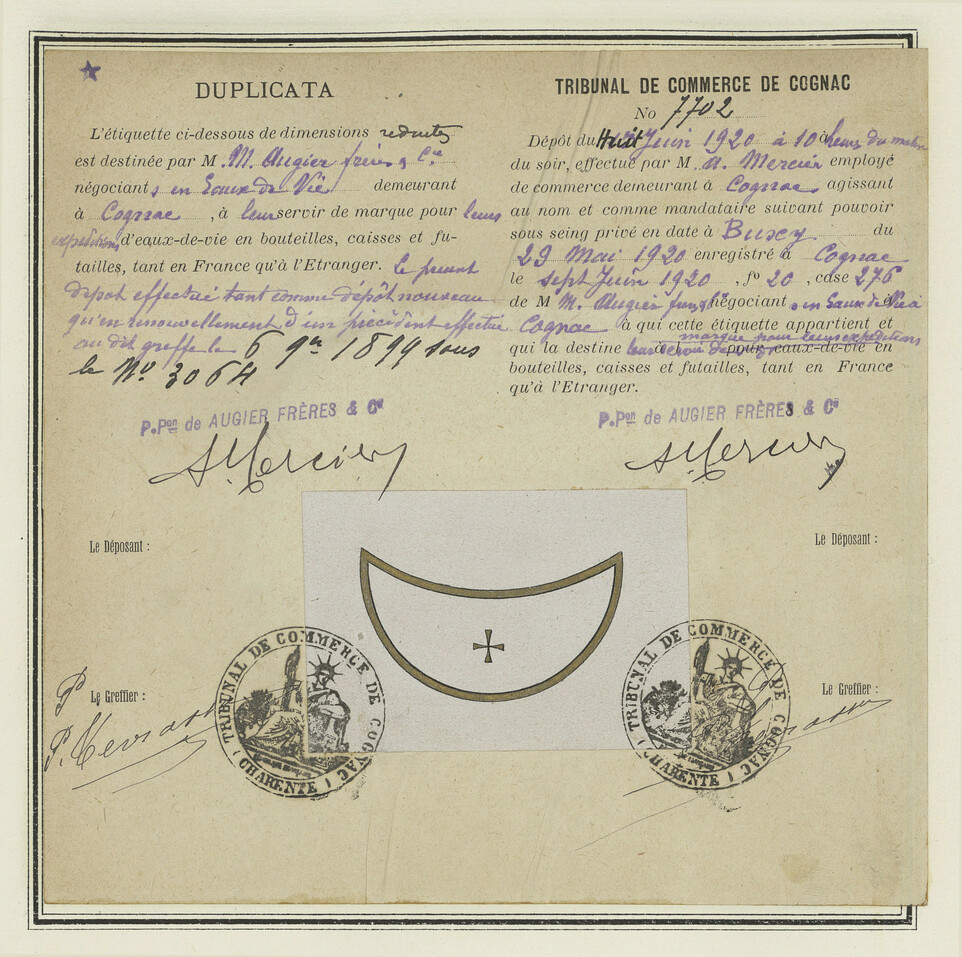 DUPLICATA
L'étiquette ci-dessous de dimensions reduites
est destinée par M. M. Augier frères & Cie
négociants en Eaux de Vie demeurant
à Cognac, à leur servir de marque pour leurs
expéditions d'eaux-de-vie en bouteilles, caisses et fu-
tailles, tant en France qu'à l'Etranger. Le présent
dépot effectué tant comme dépôt nouveau
qu'en renouvellement d'un précédent effectué
au dit greffe le 6 9bre 1899 sous
le No. 3064
P.Pon de AUGIER FRÈRES & Cie
A. Mercier
Le Déposant :
Le Greffier :
TRIBUNAL DE COMMERCE DE COGNAC
No 7702
Dépôt du Huit Juin 1920 à 10 heures du matin
du soir, effectué par M. A. Mercier employé
de commerce demeurant à Cognac, agissant
au nom et comme mandataire suivant pouvoir
sous seing privé en date à du
29 Mai 1920 enregistré à Cognac
le sept Juin 1920, fo 20, case 276
de M M. Augier négociant en Eaux de Vie à
Cognac à qui cette étiquette appartient et
marque pour leurs expéditions
qui la destine pour eaux-de-vie en
bouteilles, caisses et futailles, tant en France
qu'à l'Etranger.
P.Pon de AUGIER FRÈRES & Cie
A. Mercier
Le Déposant :
Le Greffier :
TRIBUNAL DE COMMERCE DE COGNAC
CHARENTE
TRIBUNAL DE COMMERCE DE COGNAC
CHARENTE